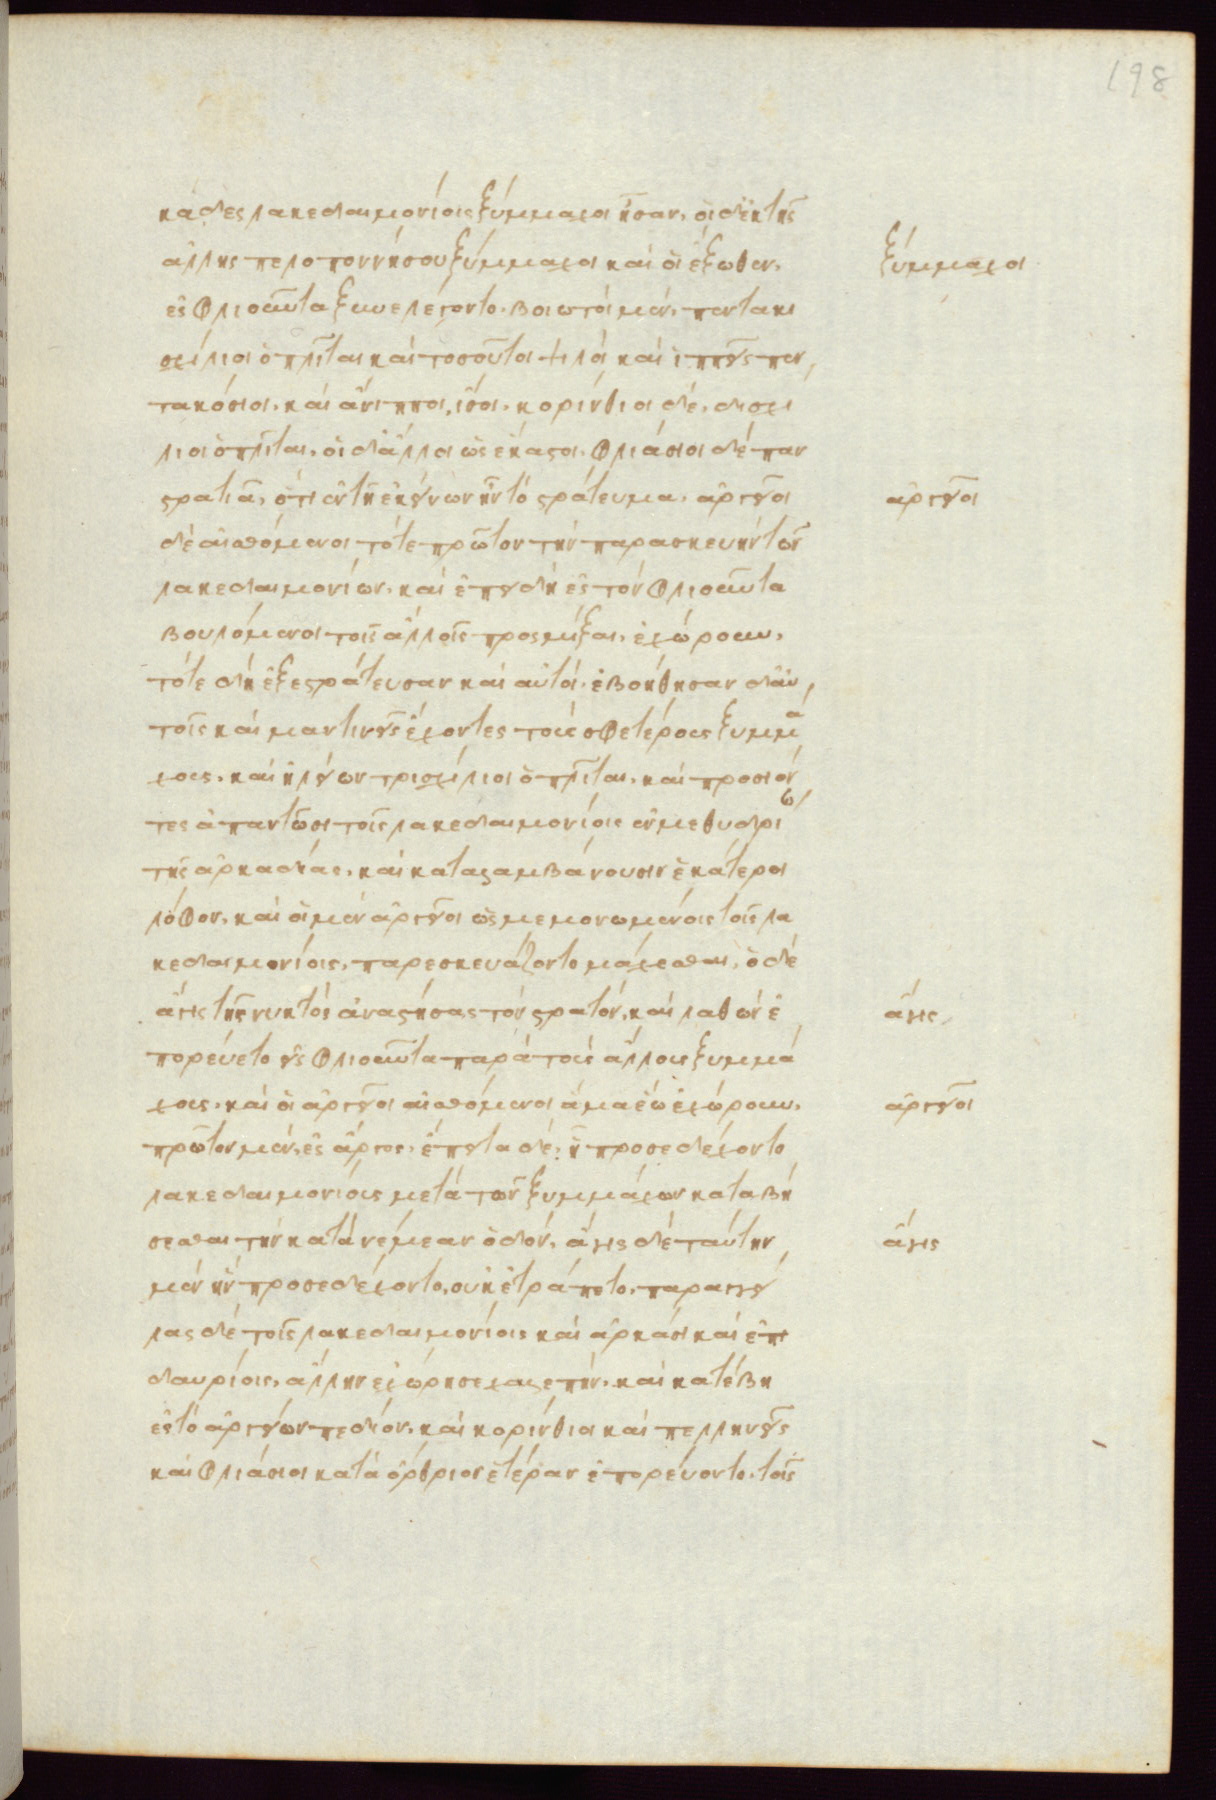 198
κάδες λακεδαιμονίοις ξύμμαχοι ἦσαν. οἱ δ' ἐκ τῆς
ἄλλης πελοποννήσου ξύμμαχοι καὶ οἱ ἔξωθεν.
ξύμμαχοι
ἐς φλιοῦντα ξυνελέγοντο. βοιωτοὶ μὲν, πεντακι
σχίλιοι ὁπλῖται καὶ τοσοῦτοι ψιλοὶ καὶ ἱππῆς πεν
τακόσιοι. καὶ ἄνιπποι, ἴσοι. κορίνθιοι δὲ, δισχί
λιοι ὁπλῖται. οἱ δ' ἄλλοι ὡς ἕκαστοι. φλιάσιοι δὲ παν
στρατιᾶ, ὅτι ἐν τῆ ἐκείνων ἦν τὸ στράτευμα. ἀργεῖοι
ἀργεῖοι
δὲ αἰσθόμενοι τότε πρῶτον τὴν παρασκευὴν τῶν
λακεδαιμονίων. καὶ ἐπειδὴ ἐς τὸν φλιοῦντα
βουλόμενοι τοῖς ἄλλοις προσμίξαι, ἐχώρουν,
τότε δὴ ἐξεστράτευσαν καὶ αὐτοί. ἐβοήθησαν δ' αὐ
τοῖς καὶ μαντινεῖς ἔχοντες τοὺς σφετέρους ξυμμά
χους. καὶ ἠλείων τρισχίλιοι ὁπλῖται. καὶ προσιόν
τες ἀπαντῶσι τοῖς λακεδαιμονίοις ἐν μεθυδρίω
τῆς ἀρκαδίας. καὶ καταλαμβάνουσιν ἑκάτεροι
λόφον. καὶ οἱ μὲν ἀργεῖοι ὡς μεμονωμένοις τοῖς λα
κεδαιμονίοις, παρεσκευάζοντο μάχεσθαι. ὁ δὲ
ἆγις τῆς νυκτὸς ἀναστήσας τὸν στρατόν, καὶ λαθὼν ἐ
ἆγις
πορεύετο εἰς φλιοῦντα παρὰ τοὺς ἄλλους ξυμμά
χους. καὶ οἱ ἀργεῖοι αἰσθόμενοι ἅμα ἕω ἐχώρουν.
ἀργεῖοι
πρῶτον μὲν, ἐς ἄργος. ἔπειτα δὲ, ἧ προσεδέχοντο
λακεδαιμονίους μετὰ τῶν ξυμμάχων καταβή
σεσθαι τὴν κατὰ νεμέαν ὁδόν. ἆγις δὲ ταύτην
ἆγις
μὲν ἣν προσεδέχοντο, οὐκ ἐτράπετο. παραγγεί
λας δὲ τοῖς λακεδαιμονίοις καὶ ἀρκάσι καὶ ἐπι
δαυρίοις, ἄλλην ἐχώρησε χαλεπήν. καὶ κατέβη
ἐς τὸ ἀργείων πεδίον. καὶ κορίνθιοι καὶ πελληνεῖς
καὶ φλιάσιοι κατὰ ὄρθριον ἑτέραν ἐπορεύοντο. τοῖς